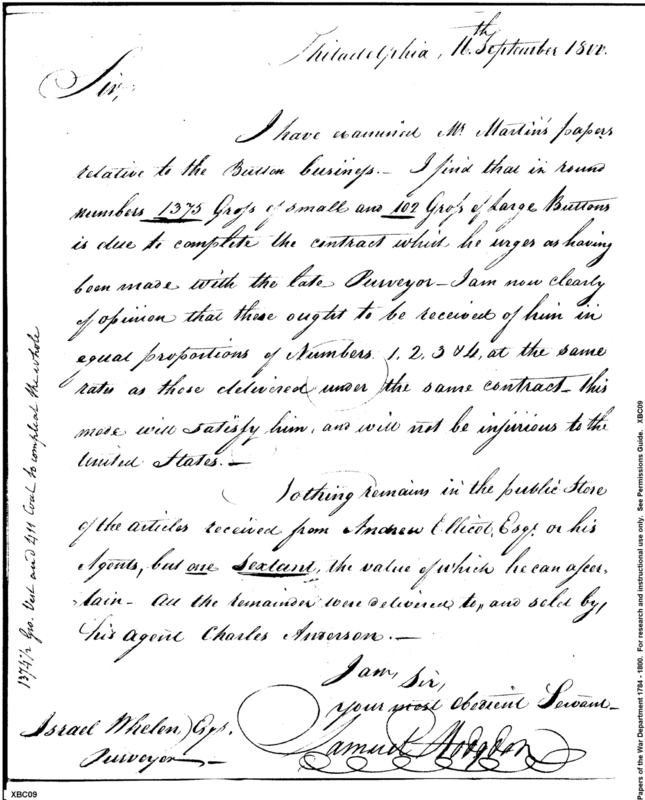 Philadelphia, 16th September 1800.
Sir,
I have examined Mr Martin's papers
relative to the Button business.— I find that in round
numbers 1375 Gross of small and 102 Gross of Large Buttons
is due to complete the contract which he urges as having
been made with the late Purveyor— I am now clearly
of opinion that these ought to be received of him in
equal proportions of Numbers 1, 2, 3 & 4, at the same
rates as those delivered under the same contract— this
mode will satisfy him, and will not be injurious to the
United States.—
Nothing remains in the public Store
of the articles received from Andrew Ellicot, Esqr. or his
Agents, but one Sextant, the value of which he can ascer,
tain— All the remainder were delivered to, and sold by,
his agent Charles Anderson.—
I am, Sir,
your most obedient Servant—
Samuel Hodgdon
Israel Whelen Esqr.
Purveyor
1374½ Gro. Vest and 411 Coat to compleat the whole
Papers of the War Department 1784 - 1800. For research and instructional use only. See Permissions Guide. XBC09
XBC09